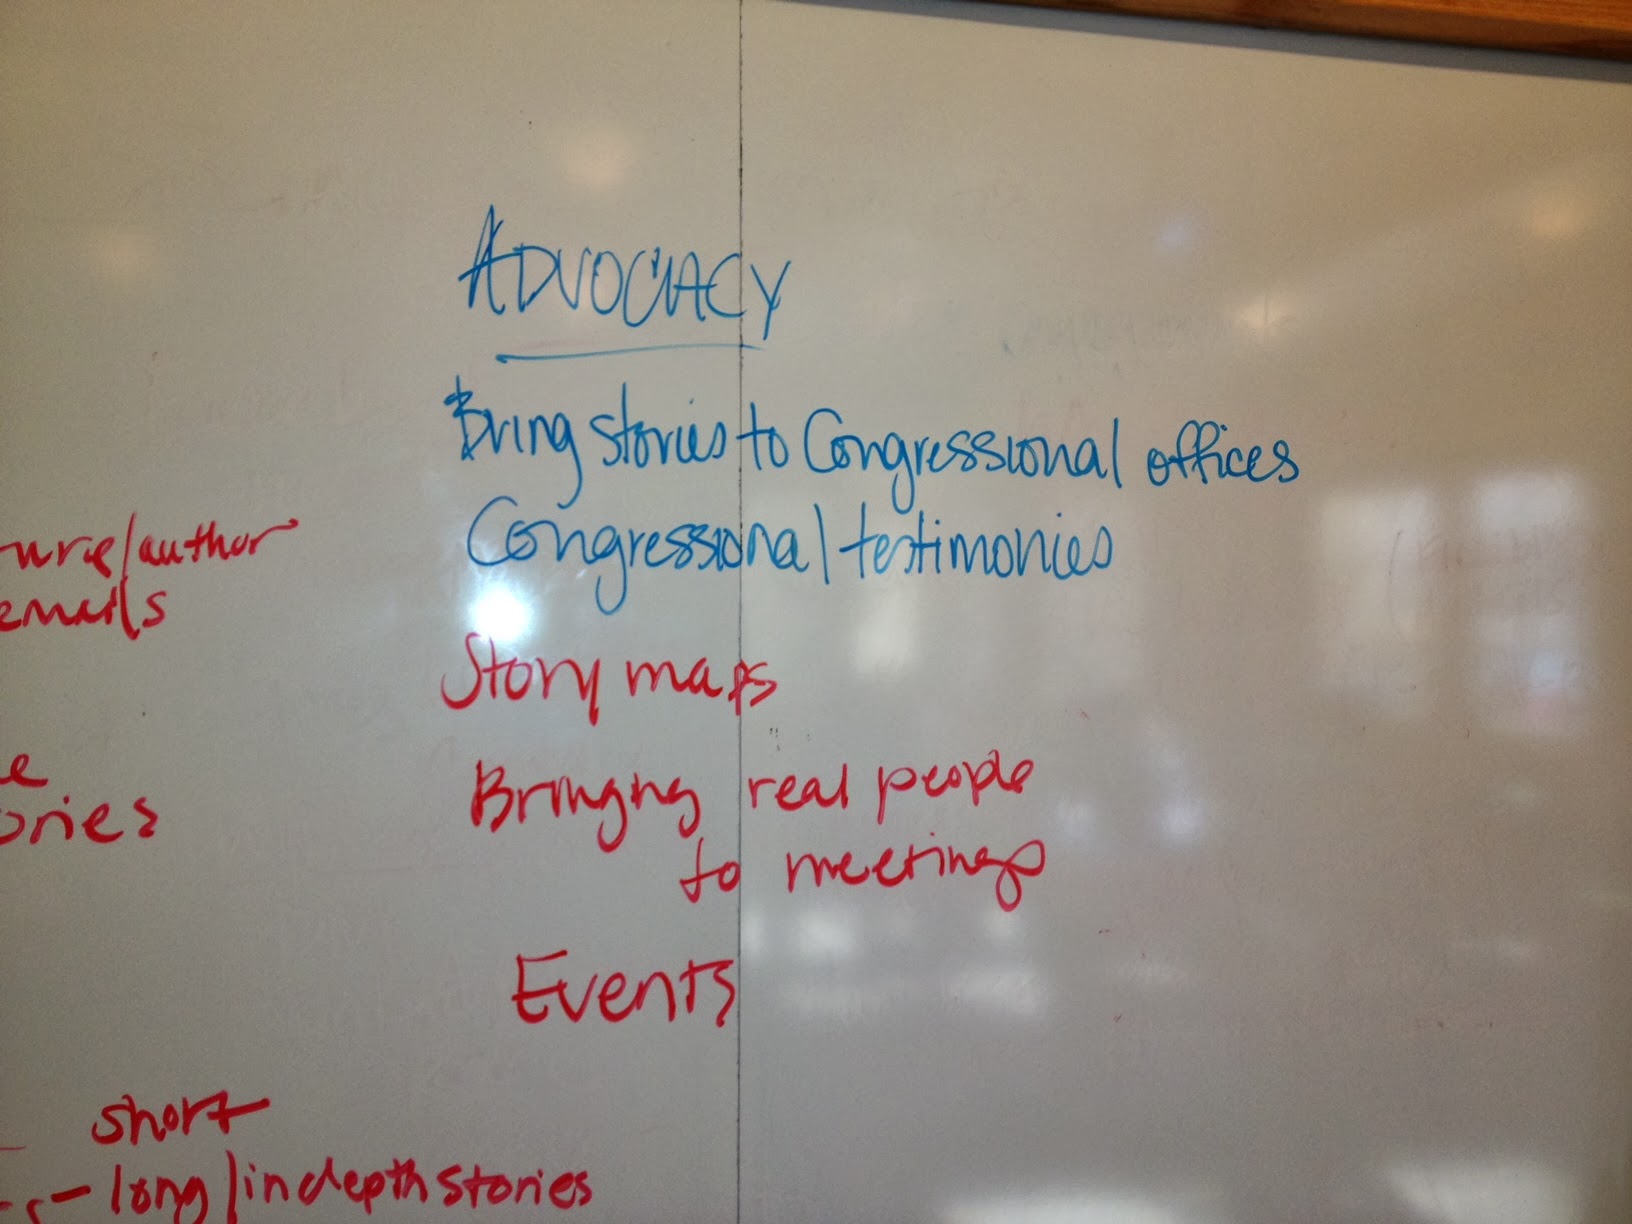 ADVOCACY
Bring stories to Congressional offices
Congressional testimonies
Story maps
Bringing real people
to meetings
Events
/author
emails
short
- long/indepth stories